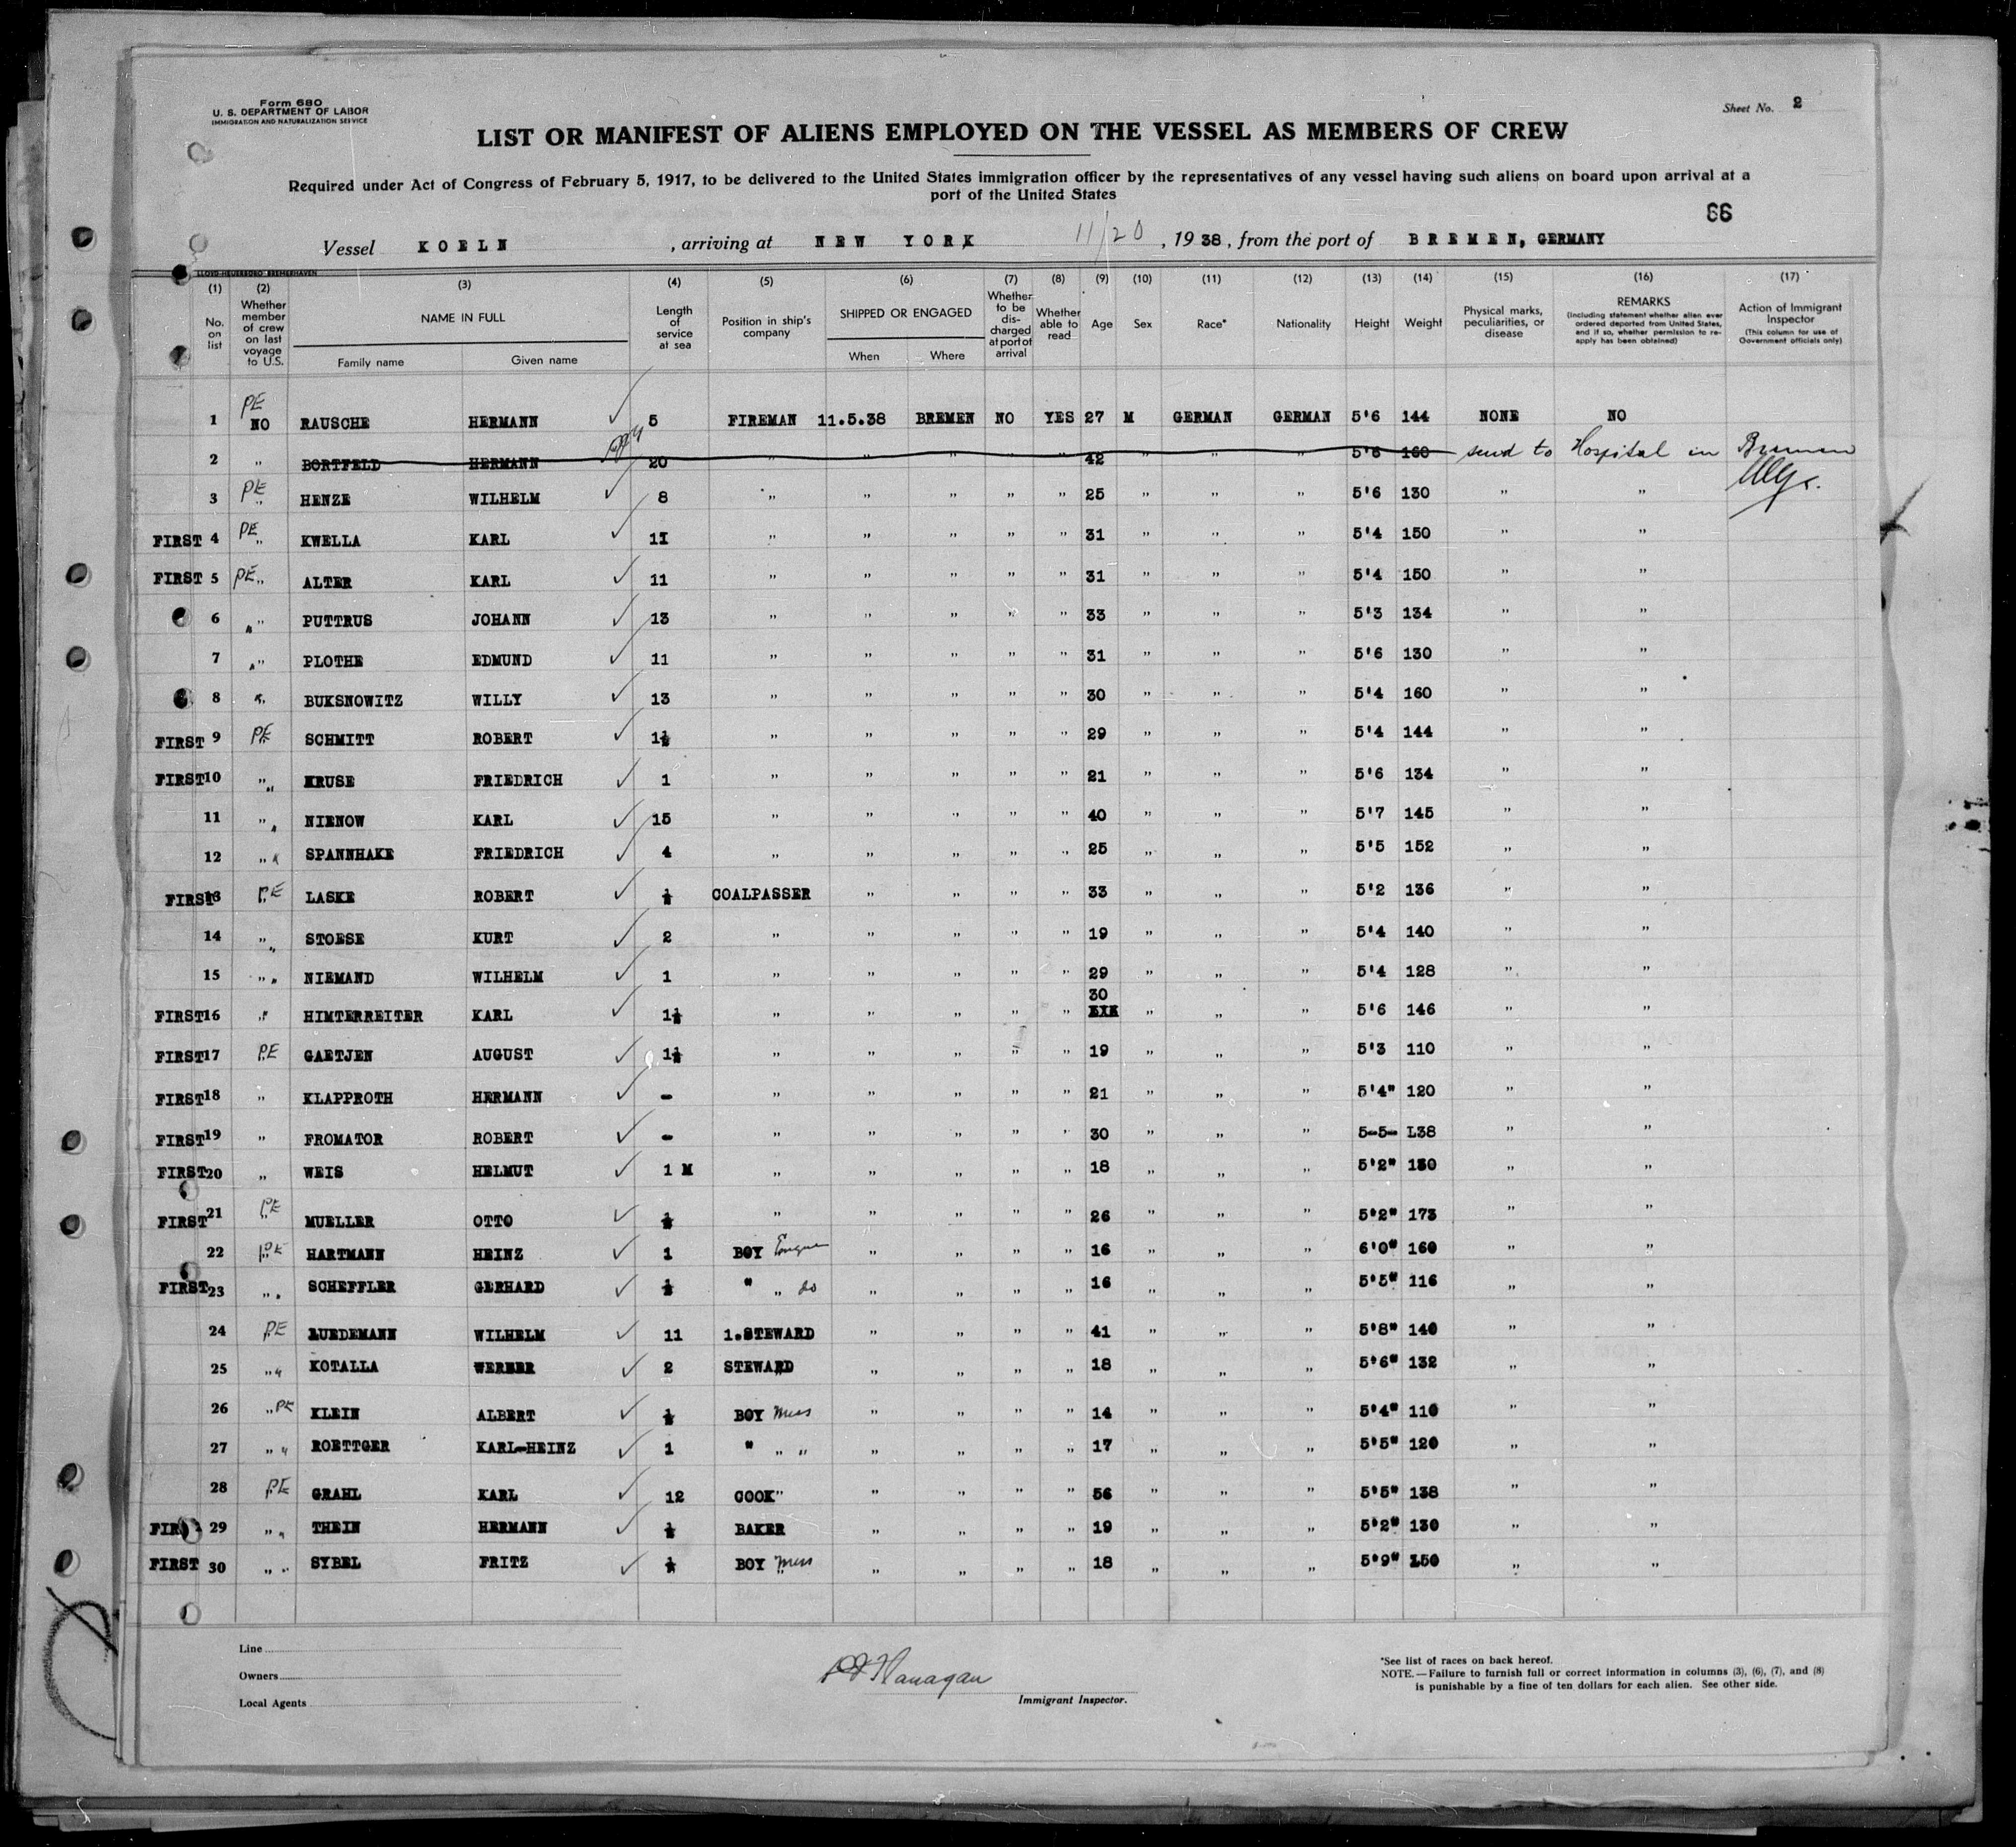 Form 680
U. S. DEPARTMENT OF LABOR
IMMIGRATION AND NATURALIZATION SERVICE
Sheet No. 2
LIST OR MANIFEST OF ALIENS EMPLOYED ON THE VESSEL AS MEMBERS OF CREW
Required under Act of Congress of February 5, 1917, to be delivered to the United States immigration officer by the representatives of any vessel having such aliens on board upon arrival at a
port of the United States
66
Vessel KOELN , arriving at NEW YORK 11/20 , 1938 , from the port of BREMEN, GERMANY
(1) (2) (3) (4) (5) (6) (7) (8) (9) (10) (11) (12) (13) (14) (15) (16) (17)
No. on list Whether member of crew on last voyage to U.S. NAME IN FULL Family name Given name Length of service at sea Position in ship's company SHIPPED OR ENGAGED When Where Whether to be discharged at port of arrival Whether able to read Age Sex Race* Nationality Height Weight Physical marks, peculiarities, or disease REMARKS (Including statement whether alien ever ordered deported from United States, and if so, whether permission to reapply has been obtained) Action of Immigrant Inspector (This column for use of Government officials only)
1 PE NO RAUSCHE HERMANN 5 FIREMAN 11.5.38 BREMEN NO YES 27 M GERMAN GERMAN 5'6 144 NONE NO
2 " BORTFELD HERMANN 20 " " " " " 42 " " " 5'6 160 send to Hospital in Bremen
3 PE " HENZE WILHELM 8 " " " " " 25 " " " 5'6 130 " "
FIRST 4 PE " KWELLA KARL 11 " " " " " 31 " " " 5'4 150 " "
FIRST 5 PE " ALTER KARL 11 " " " " " 31 " " " 5'4 150 " "
6 " " PUTTRUS JOHANN 13 " " " " " 33 " " " 5'3 134 " "
7 " " PLOTHE EDMUND 11 " " " " " 31 " " " 5'6 130 " "
8 " BUKSNOWITZ WILLY 13 " " " " " 30 " " " 5'4 160 " "
FIRST 9 PE SCHMITT ROBERT 1½ " " " " " 29 " " " 5'4 144 " "
FIRST 10 " " KRUSE FRIEDRICH 1 " " " " " 21 " " " 5'6 134 " "
11 " " NIENOW KARL 15 " " " " " 40 " " " 5'7 145 " "
12 " " SPANNHAKE FRIEDRICH 4 " " " " " 25 " " " 5'5 152 " "
FIRST 13 PE LASKE ROBERT ½ COALPASSER " " " " 33 " " " 5'2 136 " "
14 " " STOESE KURT 2 " " " " " 19 " " " 5'4 140 " "
15 " " NIEMAND WILHELM 1 " " " " " 29 " " " 5'4 128 " "
FIRST 16 " HINTERREITER KARL 1½ " " " " " 30 " " " 5'6 146 " "
FIRST 17 PE GAETJEN AUGUST 1½ " " " " " 19 " " " 5'3 110 " "
FIRST 18 " KLAPPROTH HERMANN - " " " " " 21 " " " 5'4" 120 " "
FIRST 19 " FROMATOR ROBERT - " " " " " 30 " " " 5-5- 138 " "
FIRST 20 " WEIS HELMUT 1 M " " " " " 18 " " " 5'2" 130 " "
FIRST 21 PE " MUELLER OTTO ½ " " " " " 26 " " " 5'2" 173 " "
22 PE HARTMANN HEINZ 1 BOY Engine " " " " 16 " " " 6'0" 160 " "
FIRST 23 " " SCHEFFLER GERHARD ½ " " do " " " " 16 " " " 5'5" 116 " "
24 PE LUEDEMANN WILHELM 11 1.STEWARD " " " " 41 " " " 5'8" 140 " "
25 " " KOTALLA WERNER 2 STEWARD " " " " 18 " " " 5'6" 132 " "
26 " PE KLEIN ALBERT ½ BOY Mess " " " " 14 " " " 5'4" 110 " "
27 " " ROETTGER KARL-HEINZ 1 " " " " " " " 17 " " " 5'5" 120 " "
28 PE GRAHL KARL 12 COOK" " " " " 56 " " " 5'5" 138 " "
FIRST 29 " " THEIN HERMANN ½ BAKER " " " " 19 " " " 5'2" 130 " "
FIRST 30 " " SYBEL FRITZ ½ BOY Mess " " " " 18 " " " 5'9" 150 " "
Line
Owners
Local Agents
Immigrant Inspector.
*See list of races on back hereof.
NOTE.—Failure to furnish full or correct information in columns (3), (6), (7), and (8)
is punishable by a fine of ten dollars for each alien. See other side.